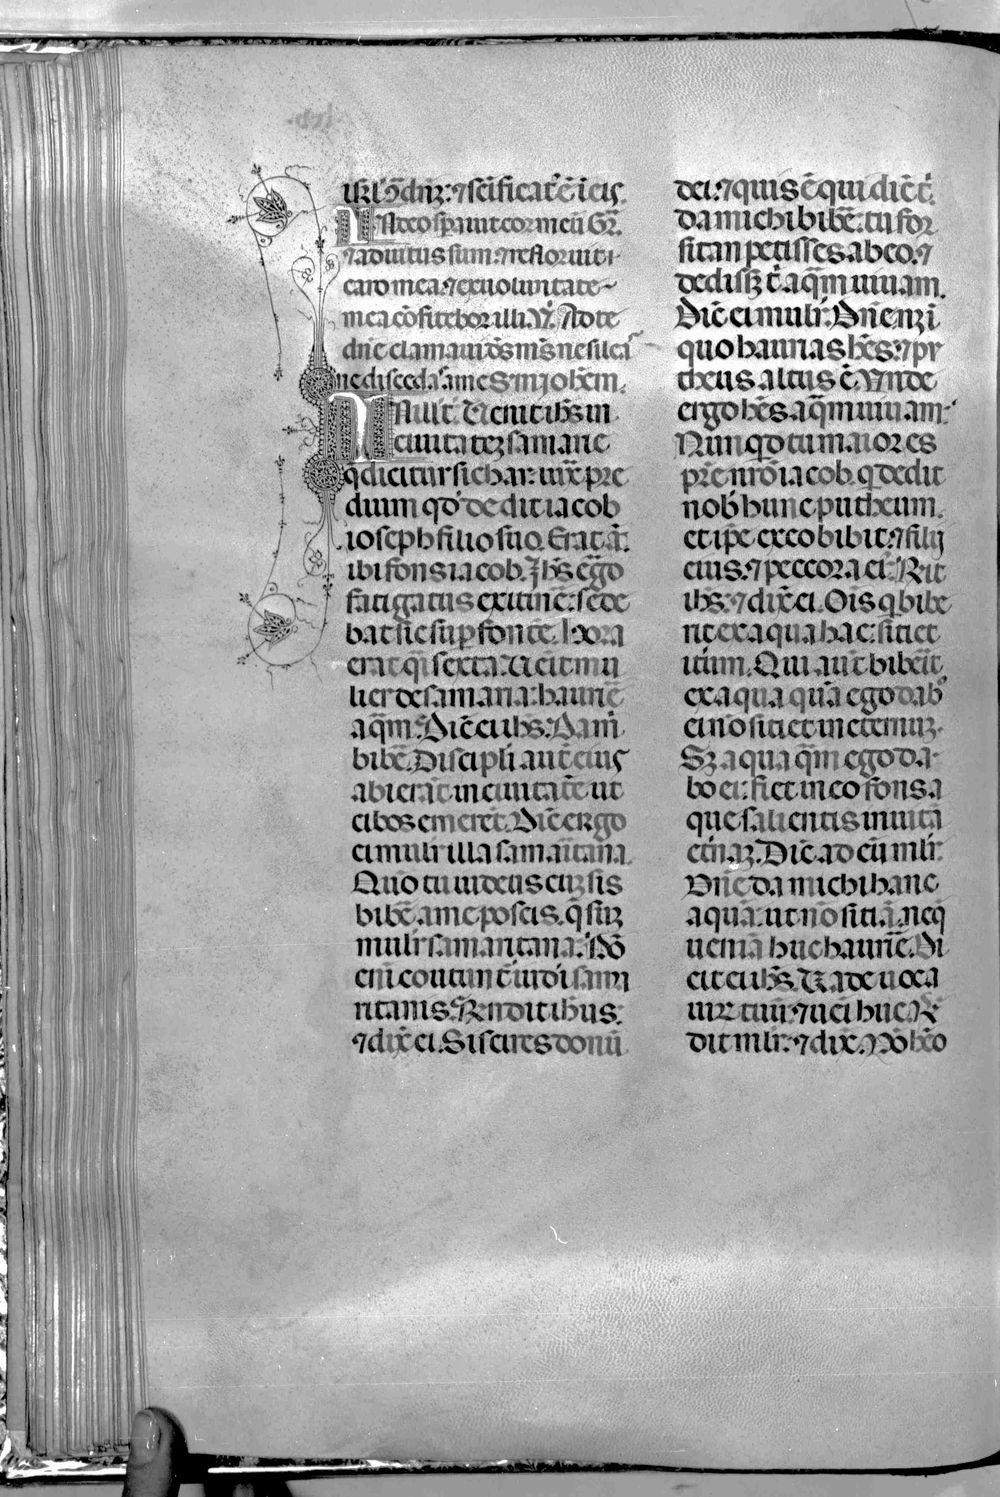 isrl' ꝯdnẓ: ⁊ scīficat' ē ī eis.
IN deo spauit cor meū Gr̄.
⁊ adiutus sum: ⁊ refloruit
caro mea. ⁊ ex uoluntate
mea cōfitebor illi. V̄. Ad te
dn̄e clamaui ds̄ ms̄ ne sileas
ne discedas a me. S. m̄ ioh̄em.
IN illo t̄. Uenit ih̄s in
ciuitatez samarie
q̄ dicitur sichar: iux̄ pre
dium qd' dedit iacob
ioseph filio suo. Erat aū̄.
ibi fons iacob. Ih̄s ḡo
fatigatus ex itine: sede
bat sic sup fontē. Hora
erat q̄i sexta. Uēit mu
lier de samaria: haurire
aq̄m. Dic̄ ei ih̄s. Da m̄i
bibē. Discipli aut̄ eius
abierāt in ciuitatē ut
cibos emerēt. Dic̄ ergo
ei muli'r illa samaritana.
Quō tu iudeus cuz sis
bibē a me poscis. q̄ suz
muli'r samaritana. Nō
eni coutunt' iudei sama
ritanis. Rn̄dit ih̄us:
⁊ dix̄ ei. Si scires donū
dei: ⁊ quis ē qui dic̄ t̄.
da michi bibē: tu for
sitan petisses ab eo. ⁊
dedissz t̄ aq̄m uiuam.
Dic̄ ei muli'r. Dn̄e nz ī
quo haurias hēs: ⁊ pu
theus altus ē. Unde
ergo hēs aq̄m uiuam:
Nunqd tu maior es
pr̄e nr̄o iacob. q dedit
nob' hunc putheum.
et ip̄e ex eo bibit: ⁊ filij
eius. ⁊ peccora ei'. Rn̄t
ih̄s: ⁊ dix̄ ei. Ōis q bibe
rit ex aqua hac: sitiet
itūm. Qui aut̄ biberit
ex aqua quā ego dab'o
ei nō sitiet in eternuz.
Sz aqua q̄m ego da
bo ei: fiet in eo fons a
que salientis in uitā
et̄naz. Dic̄ ad eū mli'r.
Dn̄e da michi hanc
aquā: ut nō sitiā. neq
ueniā huc haurire. Di
cit ei ih̄s. Uade uoca
uirū tuū: ⁊ ueī huc. Rn̄
dit mli'r: ⁊ dix̄. Nō hēo